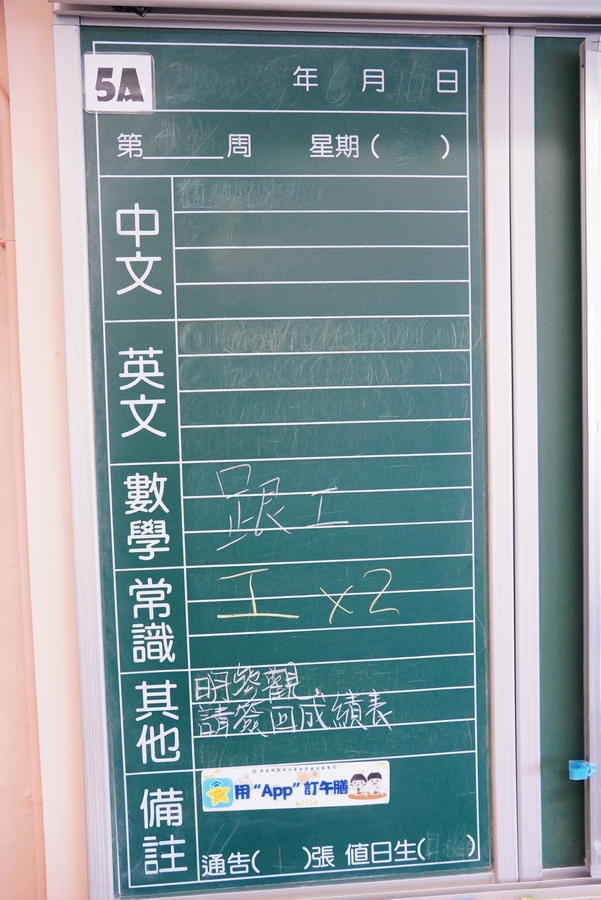 5A
年 月 日
第 周 星期( )
中文
英文
數學
跟工
常識
工 x2
其他
明參觀
請簽回成績表
備註
用“App”訂午膳
通告( )張 值日生( )